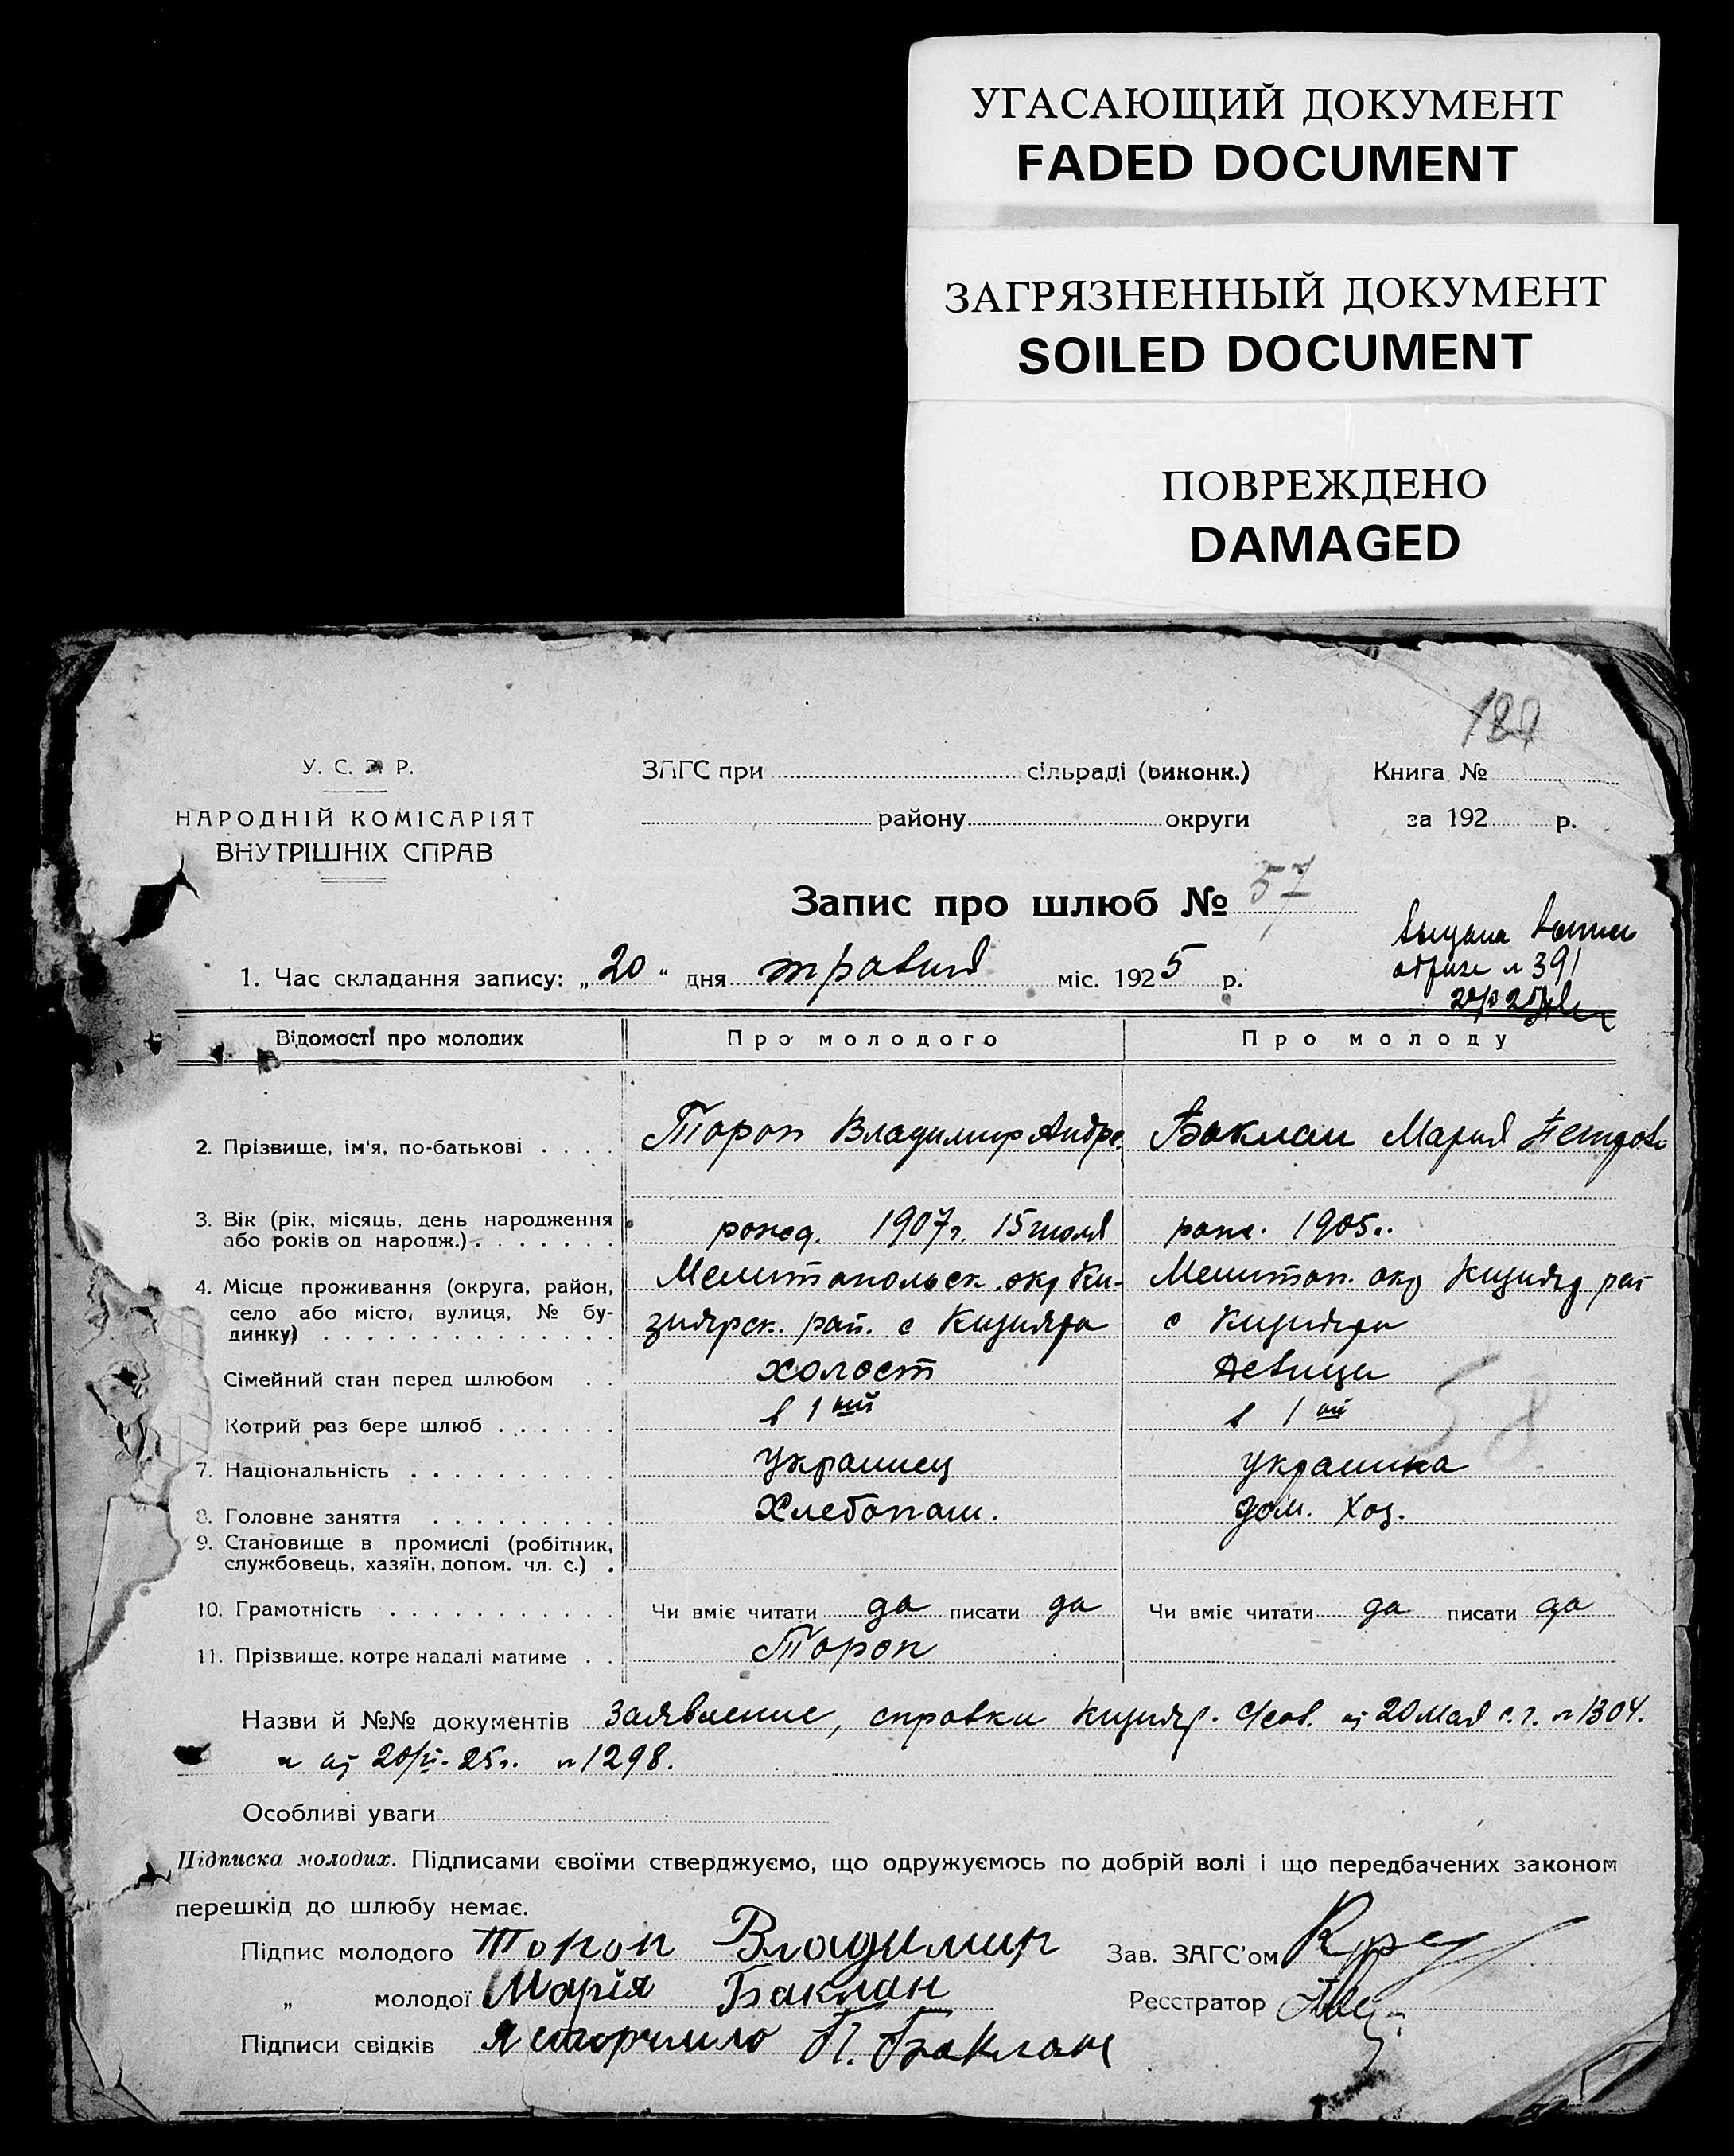 УГАСАЮЩИЙ ДОКУМЕНТ
FADED DOCUMENT
ЗАГРЯЗНЕННЫЙ ДОКУМЕНТ
SOILED DOCUMENT
ПОВРЕЖДЕНО
DAMAGED
У. С. Р. Р.
НАРОДНІЙ КОМІСАРІЯТ
ВНУТРІШНІХ СПРАВ
ЗАГС при сільраді (виконк.)
району округи
Книга №
за 192 р.
Запис про шлюб № 57
№ 391
1. Час складання запису: „20“ дня травня міс. 1925 р.
Відомості про молодих Про молодого Про молоду
2. Прізвище, ім'я, по-батькові Тороп Владимир Андре. Баклан Мария
3. Вік (рік, місяць, день народження рожд. 1907 г. 15 июля рожд. 1905 г.
або років од народж.)
4. Місце проживання (округа, район, Мелитопольск. окр Ки- Мелитоп. окр Кизияр рай
село або місто, вулиця, № бу- зиярск. рай. с Кизияра с Кизияра
динку)
Сімейний стан перед шлюбом холост девица
Котрий раз бере шлюб в 1ый в 1ый
7. Національність Украинец украинка
8. Головне заняття Хлебопаш. дом. хоз.
9. Становище в промислі (робітник,
службовець, хазяїн, допом. чл. с.)
10. Грамотність Чи вміє читати да писати да Чи вміє читати да писати да
11. Прізвище, котре надалі матиме Тороп
Назви й №№ документів Заявление, справки Кизияр. С/сов. от 20 мая с. г. № 1304.
и от 20/V-25 г. № 1298.
Особливі уваги
Підписка молодих. Підписами своїми стверджуємо, що одружуємось по добрій волі і що передбачених законом
перешкід до шлюбу немає.
Підпис молодого Тороп Владимир Зав. ЗАГС'ом
„ молодої Марія Баклан Реєстратор
Підписи свідків П. Баклан